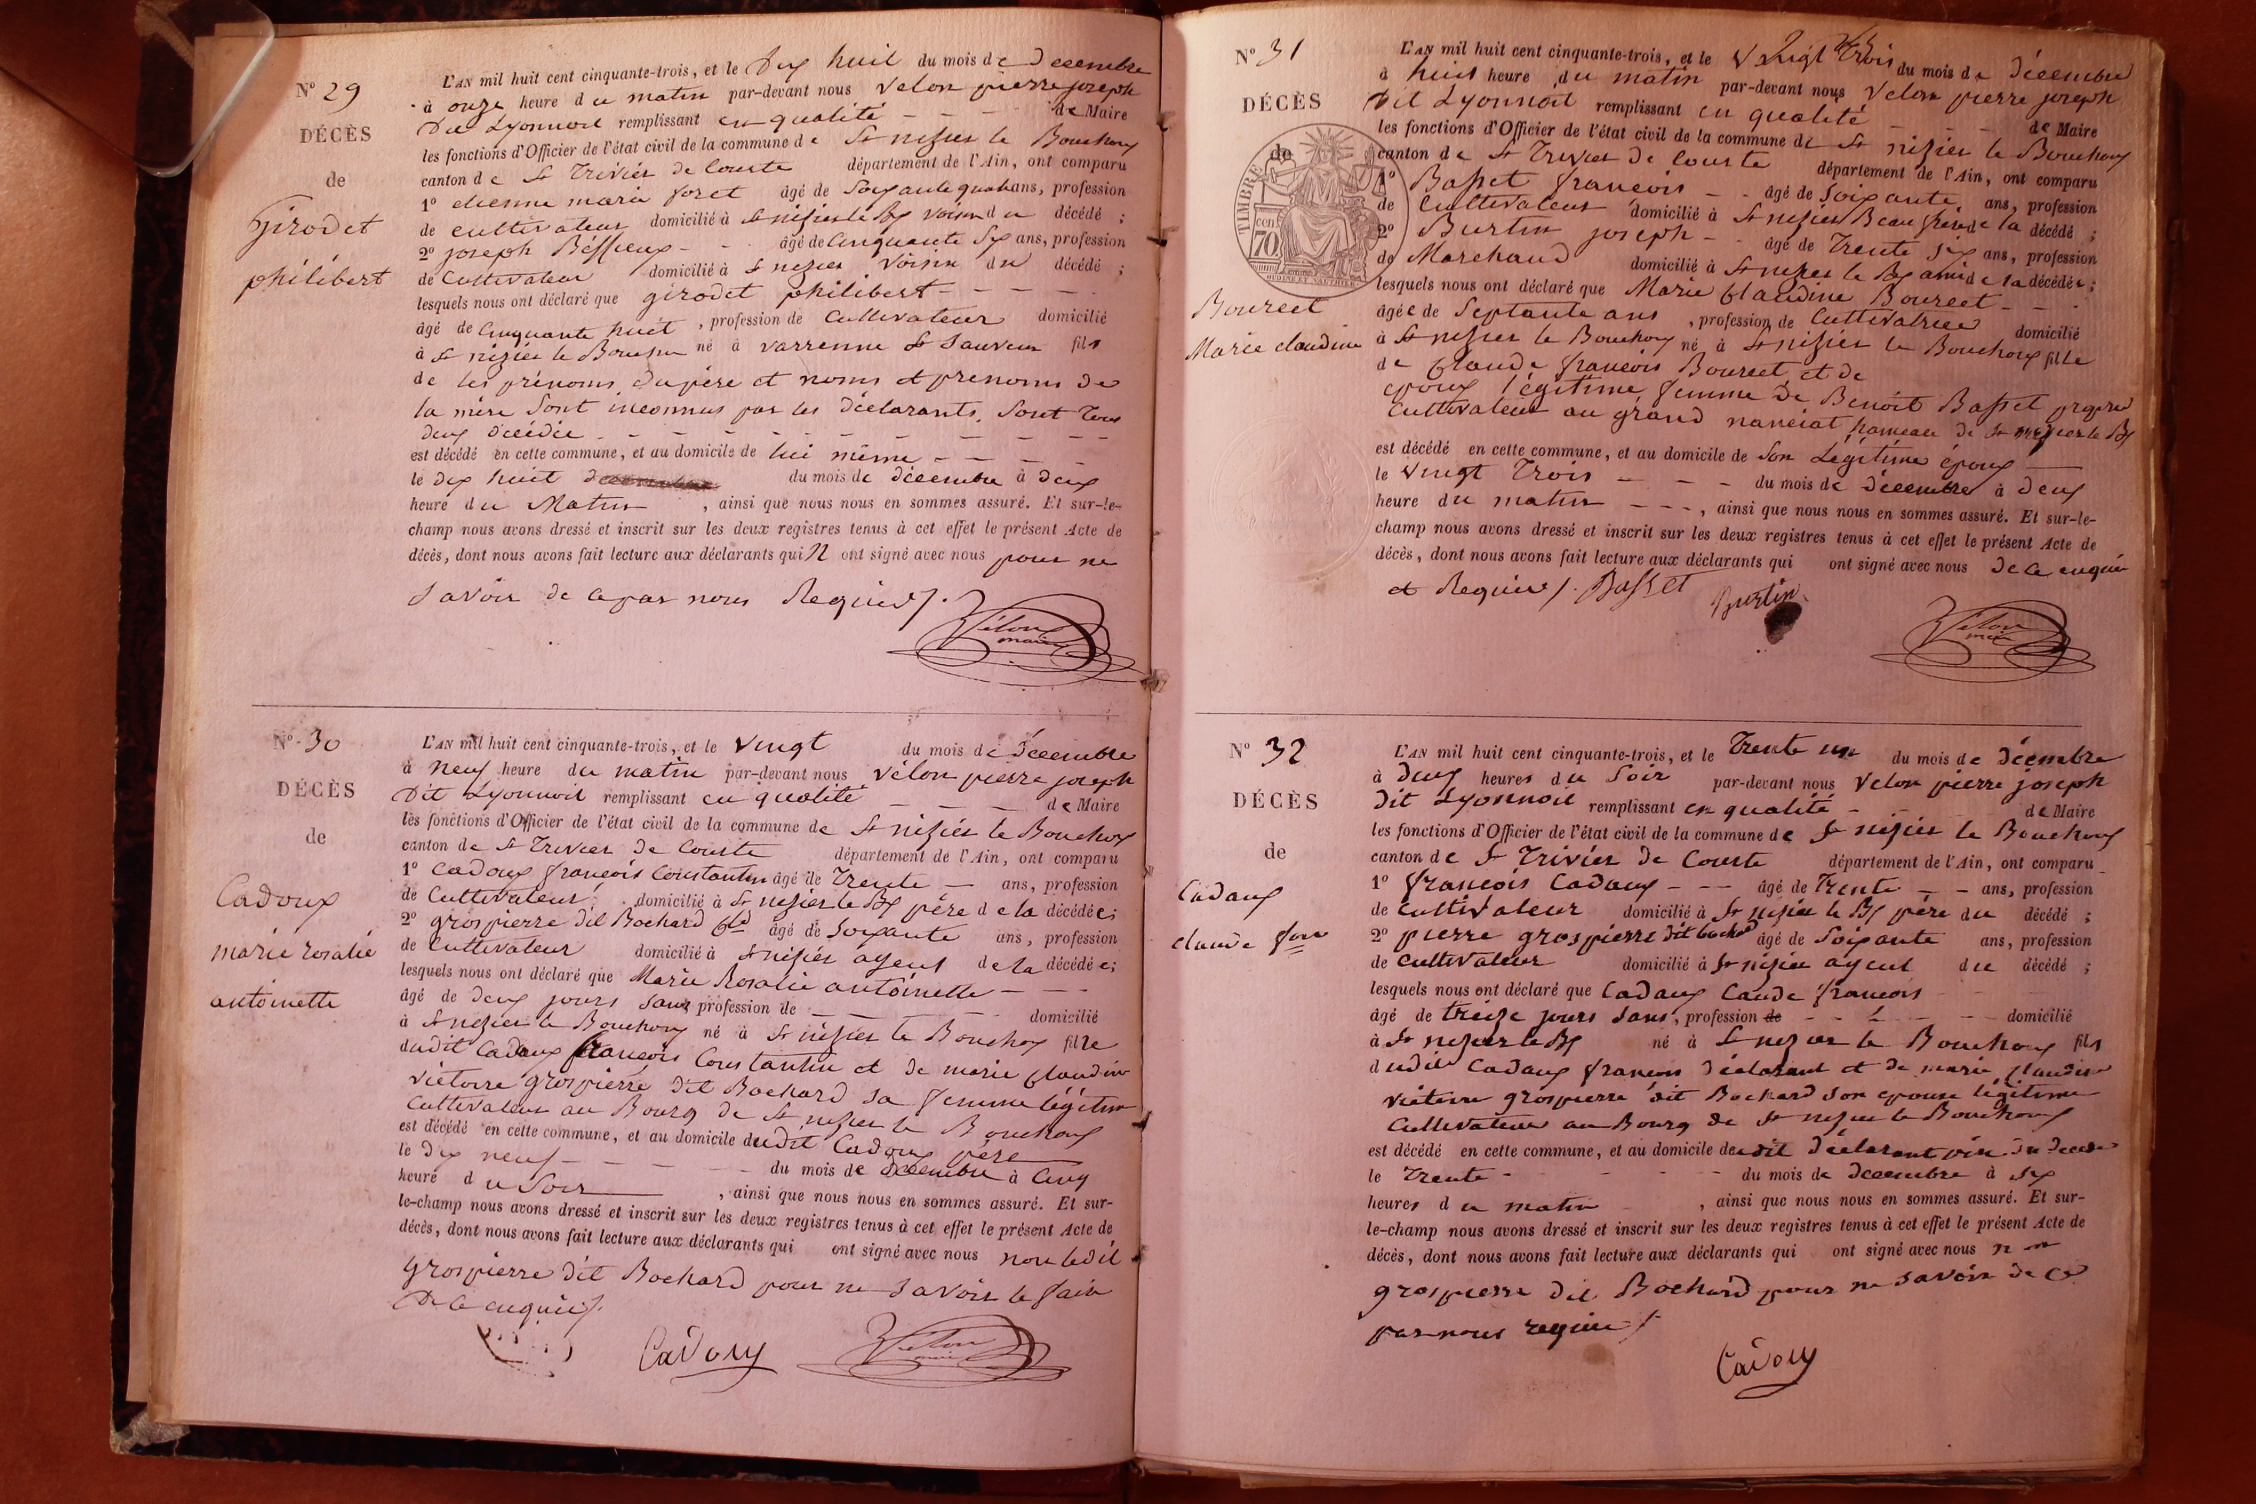 N° 29
DÉCÈS
de
Girodet
philibert
L'AN mil huit cent cinquante-trois, et le Dix huit du mois de Decembre
à onze heure du matin par-devant nous Velon pierre joseph
Dit Lyonnoit remplissant en qualité - - - de Maire
les fonctions d'Officier de l'état civil de la commune de St nizier le Bouchoux
canton de St Trivier de Courte département de l'Ain, ont comparu
1° etienne marie foret âgé de Soixante quatre ans, profession
de cultivateur domicilié à St nizier le Bx voisin du décédé ;
2° joseph Béssieux - - âgé de Cinquante Six ans, profession
de Cultivateur domicilié à St nezier voisin du décédé ;
lesquels nous ont déclaré que girodet philibert - - - -
âgé de Cinquante huit , profession de Cultivateur domicilié
à St nizier le Bouchoux né à varrenne St Sauveur fils
de les prénoms du père et noms et prenoms de
la mère Sont inconnus par les déclarants, Sont Tous
deux décédée - - - - - - - - -
est décédé en cette commune, et au domicile de lui même - - - -
le dix huit du mois de décembre à deux
heure du Matin , ainsi que nous nous en sommes assuré. Et sur-le-
champ nous avons dressé et inscrit sur les deux registres tenus à cet effet le présent Acte de
décès, dont nous avons fait lecture aux déclarants qui n ont signé avec nous pour ne
Savoir de ce par nous Requis /.
Vélon
maire
N° 30
DÉCÈS
de
Cadoux
marie rosalie
antoinette
L'AN mil huit cent cinquante-trois, et le Vingt du mois de Décembre
à neuf heure du matin par-devant nous Vélon pierre joseph
Dit Lyonnoit remplissant en qualité - - - de Maire
les fonctions d'Officier de l'état civil de la commune de St niziér le Bouchoux
canton de St Trivier de Courte département de l'Ain, ont comparu
1° Cadoux françois Constantin âgé de Trente - ans, profession
de Cultivateur domicilié à St nizier le Bx père de la décédée;
2° grospierre dit Bochard Cld âgé de Soixante ans, profession
de Cultivateur domicilié à St niziér ayeul de la décédée;
lesquels nous ont déclaré que Marie Rosalie antoinette - - -
âgé de deux jours sans profession de - - - domicilié
à St nezier le Bouchoux né à St nizier le Bouchoux fille
dudit Cadoux françois Constantin et de marie Claudine
victoire grospierre dit Bochard sa femme légitime
Cultivateur au Bourg de St nezier le Bouchoux
est décédé en cette commune, et au domicile dudit Cadoux père
le dix neuf - - - - du mois de décembre à Cinq
heure du Soir , ainsi que nous nous en sommes assuré. Et sur-
le-champ nous avons dressé et inscrit sur les deux registres tenus à cet effet le présent Acte de
décès, dont nous avons fait lecture aux déclarants qui ont signé avec nous non le dit
Grospierre dit Bochard pour ne Savoir le faire
De ce enquis /.
Cadoux
Vélon
N° 31
DÉCÈS
de
TIMBRE
70
Bourcet
Marie claudine
L'AN mil huit cent cinquante-trois, et le Vingt Trois du mois de décembre
à huit heure du matin par-devant nous Velon pierre joseph
Dit Lyonnoit remplissant en qualité - - - de Maire
les fonctions d'Officier de l'état civil de la commune de St nizier le Bouchoux
canton de St Trivier de Courte département de l'Ain, ont comparu
1° Basset françois - - âgé de Soixante ans, profession
de Cultivateur domicilié à St nezier Beau frère de la décédé ;
2° Burtin joseph - - âgé de Trente six ans, profession
de Marchand domicilié à St nezier le Bx ami de la décédée ;
lesquels nous ont déclaré que Marie Claudine Bourcet - - -
âgée de Septante ans , profession de Cultivatrice domicilié
à St nezier le Bouchoux né à St nizier le Bouchoux fille
de Claude françois Bourcet et de
epoux légitime femme de Benoit Basset propre
Cultivateur au grand nanciat hameau de St nezier le Bx
est décédé en cette commune, et au domicile de Son Légitime époux
le Vingt Trois - - - du mois de Décembre à deux
heure du matin - - - , ainsi que nous nous en sommes assuré. Et sur-le-
champ nous avons dressé et inscrit sur les deux registres tenus à cet effet le présent Acte de
décès, dont nous avons fait lecture aux déclarants qui ont signé avec nous de ce enquis
et Requis /. Basset
Burtin
Vélon
N° 32
DÉCÈS
de
Cadoux
claude fois
L'AN mil huit cent cinquante-trois, et le Trente un du mois de décembre
à deux heures du Soir par-devant nous Velon pierre joseph
Dit Lyonnoit remplissant en qualité - de Maire
les fonctions d'Officier de l'état civil de la commune de St nizier le Bouchoux
canton de St Trivier de Courte département de l'Ain, ont comparu
1° françois Cadoux - - - âgé de Trente - - ans, profession
de Cultivateur domicilié à St nizier le Bx père du décédé ;
2° pierre grospierre dit bochard âgé de Soixante ans, profession
de Cultivateur domicilié à St nizier ayeul du décédé ;
lesquels nous ont déclaré que Cadoux Caude francois
âgé de treize jours Sans, profession de - - - domicilié
à St nezier le Bx né à St nezier le Bouchoux fils
dudit Cadoux françois déclarant et de marie claudine
victoire grospierre dit Bochard Son epouse légitime
Cultivateur au Bourg de St nezier le Bouchoux
est décédé en cette commune, et au domicile dudit déclarant père du décédé
le Trente - du mois de decembre à Six
heures du matin , ainsi que nous nous en sommes assuré. Et sur-
le-champ nous avons dressé et inscrit sur les deux registres tenus à cet effet le présent Acte de
décès, dont nous avons fait lecture aux déclarants qui ont signé avec nous non
grospierre dit Bochard pour ne savoir de ce
par nous requis /
Cadoux